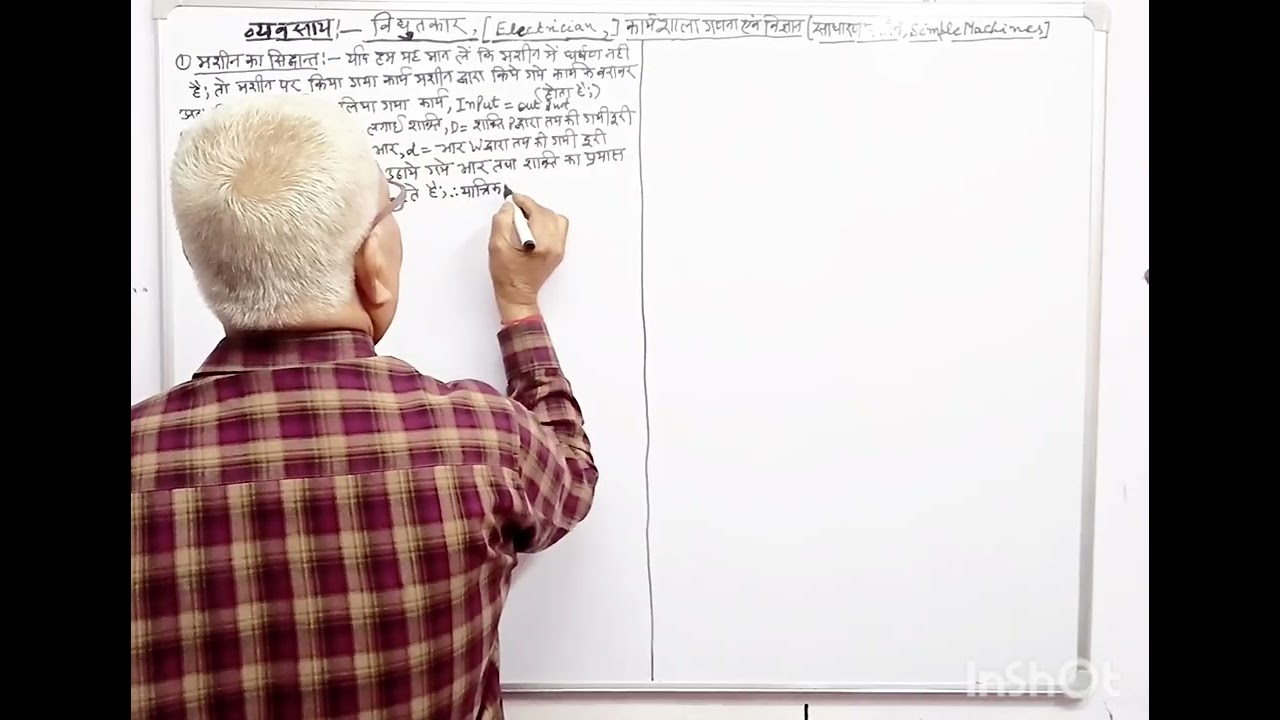 व्यवसाय:— विद्युतकार, [Electrician,] कार्यशाला गणना एवं विज्ञान (साधारण Simple Machines]
① मशीन का सिद्धान्त:— यदि हम यह मान लें कि मशीन में घर्षण नही
है; तो मशीन पर किया गया कार्य मशीन द्वारा किये गये कार्य के बराबर
(होता है;)
लिया गया कार्य, Input = output
लगाई शक्ति, D = शक्ति P द्वारा तय की गयी दूरी
भार, d = भार W द्वारा तय की गयी दूरी
उठाये गये भार तथा शक्ति का प्रयास
है; ∴ यान्त्रिक
InShOt